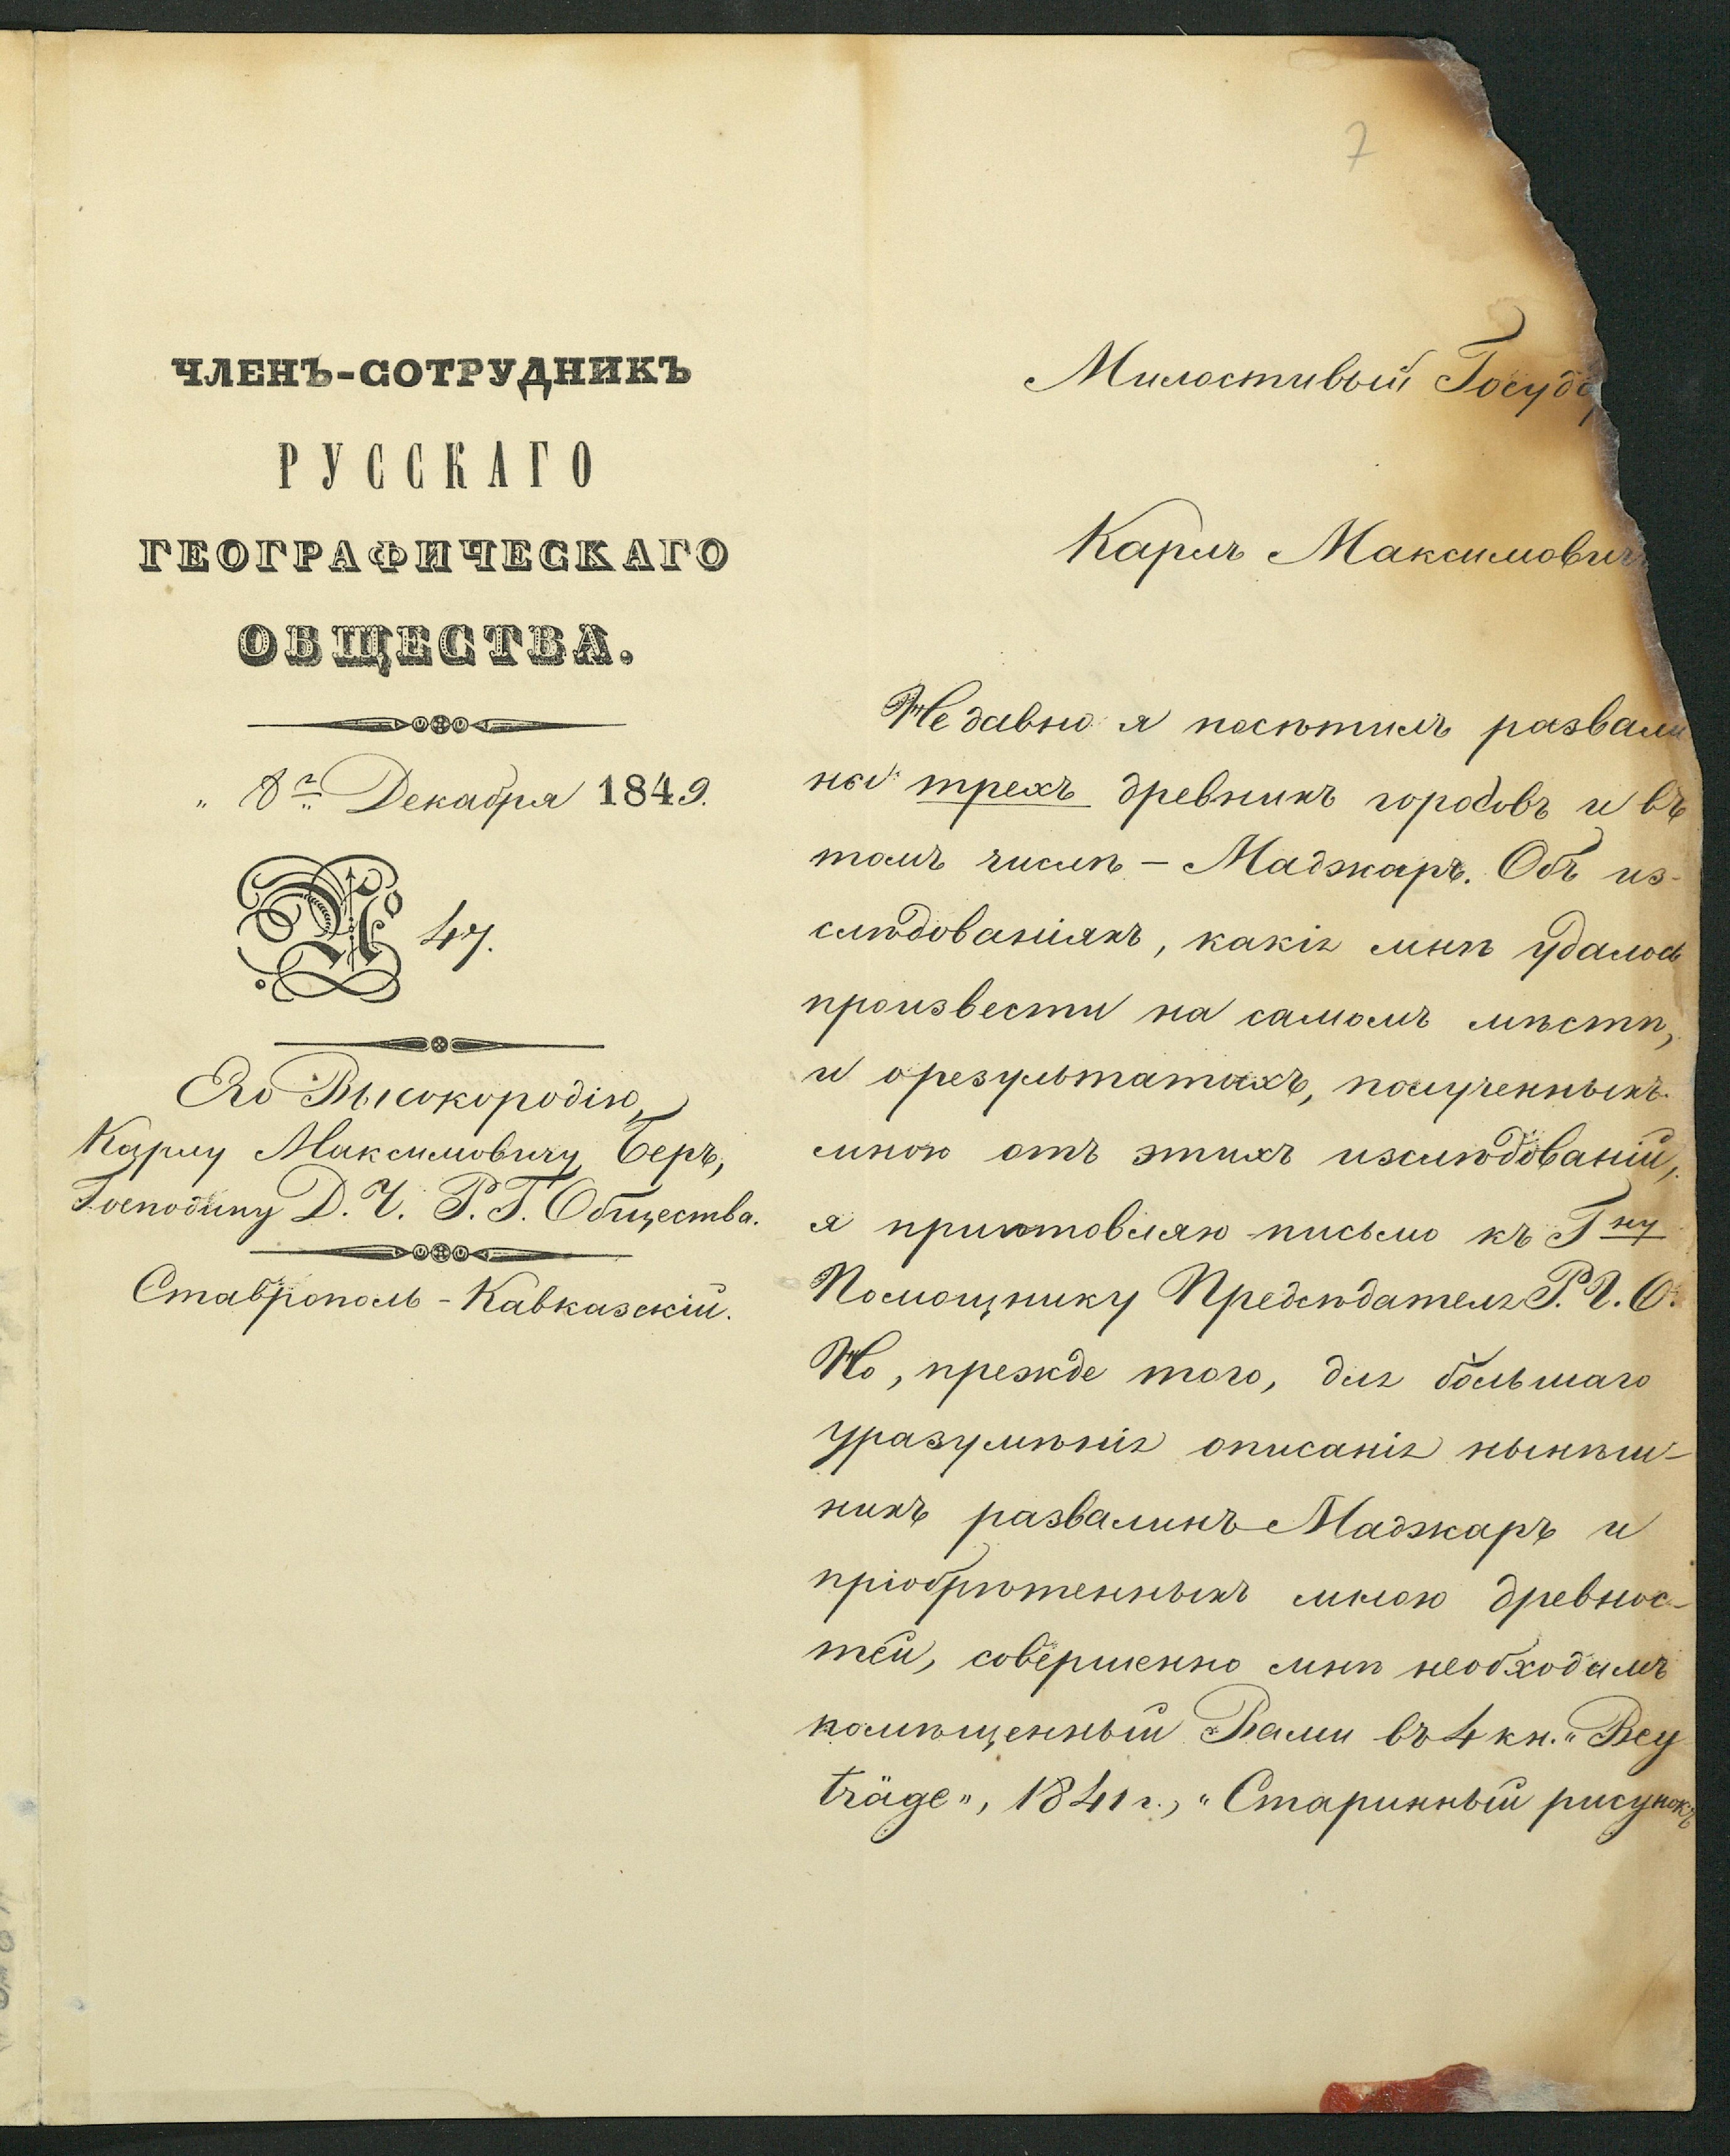 7
ЧЛЕНЪ-СОТРУДНИКЪ
РУССКАГО
ГЕОГРАФИЧЕСКАГО
ОБЩЕСТВА.
„ 8го Декабря 1849.
№ 47.
Его Высокородію,
Карлу Максимовичу Беръ,
Господину Д. Ч. Р. Г. Общества.
Ставрополь-Кавказскій.
Милостивый Госуда
Карлъ Максимовичъ
Недавно я посѣтилъ развали
ны трехъ древнихъ городовъ и въ
томъ числѣ – Маджаръ. Объ из-
слѣдованіяхъ, какія мнѣ удалось
произвести на самомъ мѣстѣ,
и о результатахъ, полученныхъ
мною отъ этихъ изслѣдованій,
я приготовляю письмо къ Гну
Помощнику Предсѣдателя Р. Г. О.
Но, прежде того, для бо̀льшаго
уразумѣнія описанія нынѣш-
нихъ развалинъ Маджаръ и
пріобрѣтенныхъ мною древнос-
тей, совершенно мнѣ необходимъ
помѣщенный Вами въ 4 кн. „Bey
träge„, 1841 г., „Старинный рисунокъ